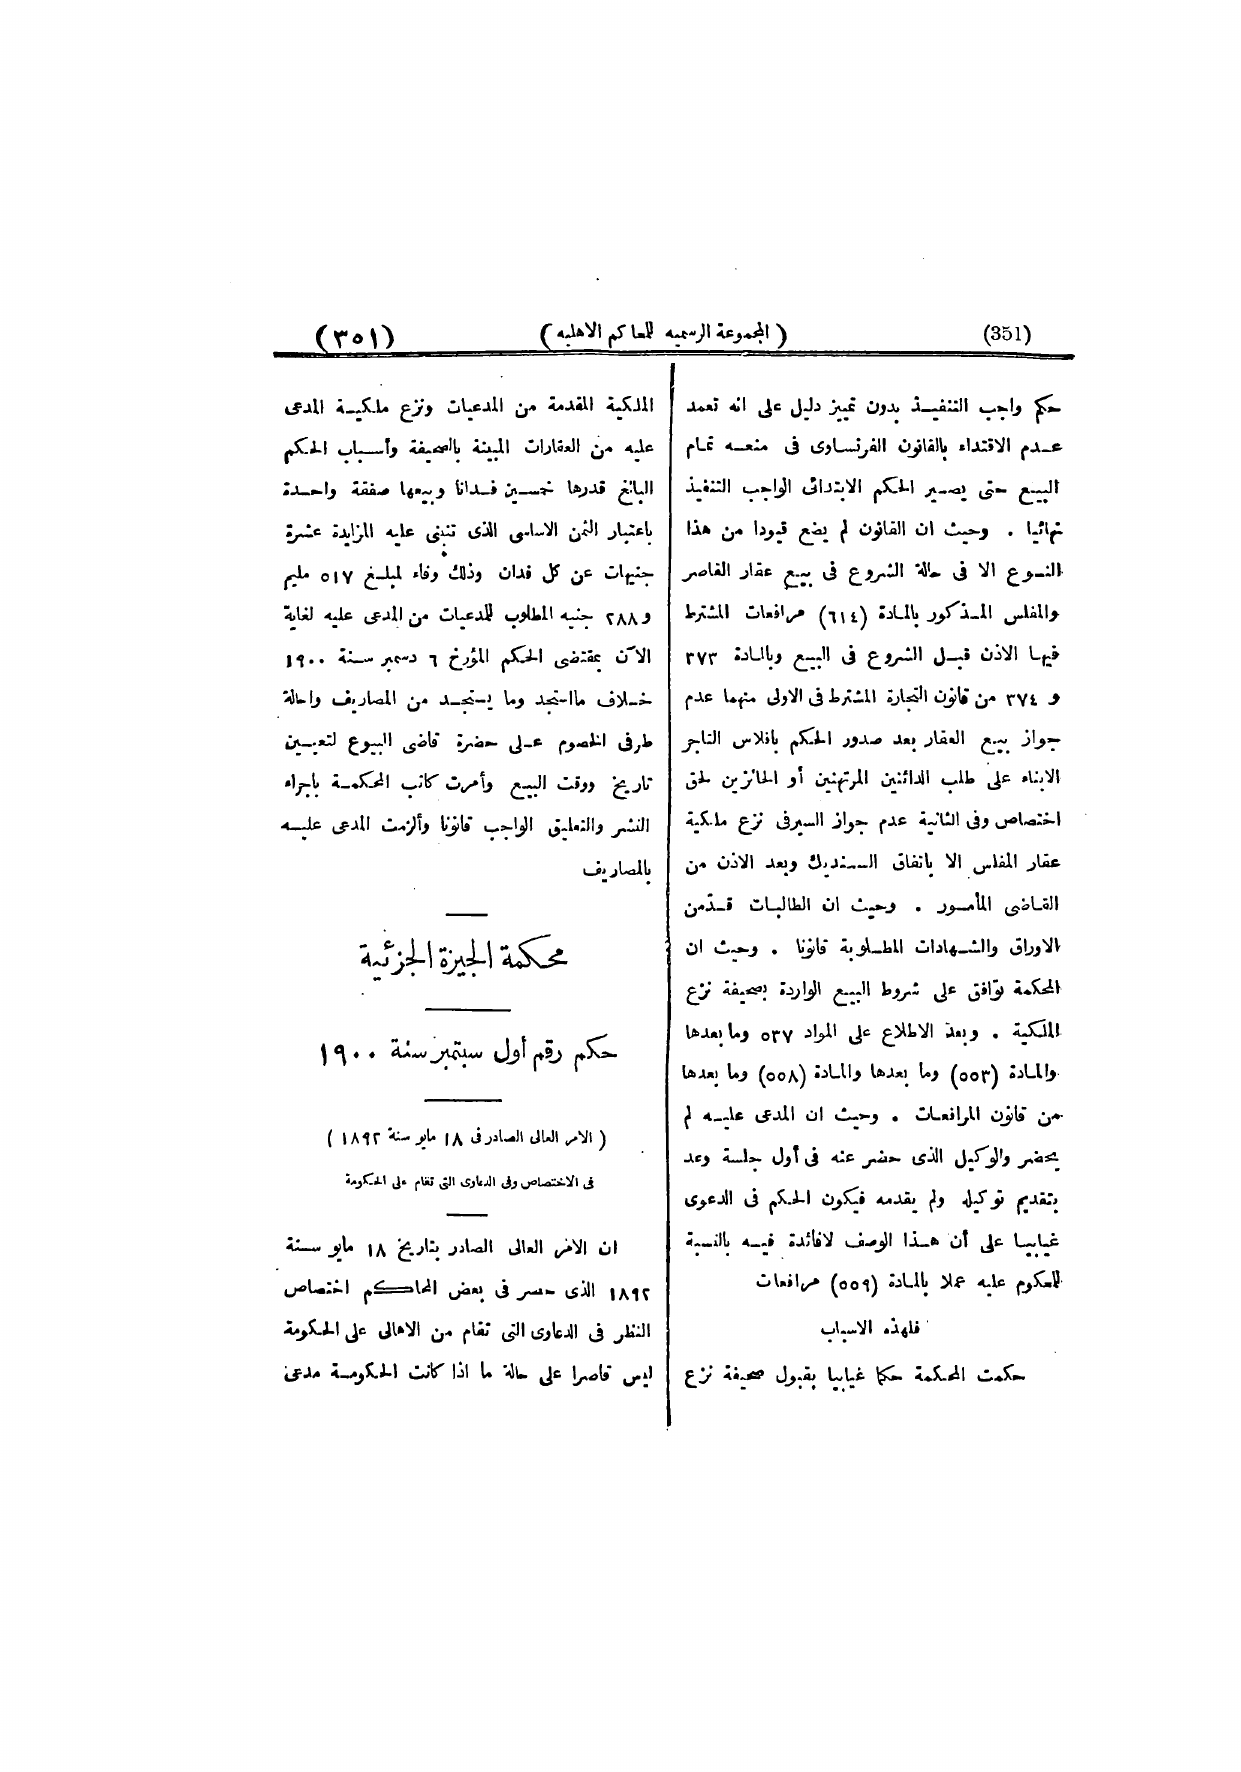 (351) ( المجموعة الرسميه للمحاكم الاهليه ) (٣٥١)
حكم واجب التنفيذ بدون تمييز دليل على انه تعمد
عدم الاقتداء بالقانون الفرنساوى فى منعه تمام
البيع حتى يصير الحكم الابتدائى الواجب التنفيذ
نهائيا . وحيث ان القانون لم يضع قيودا من هذا
النوع الا فى حالة الشروع فى بيع عقار القاصر
والمفلس المذكور بالمادة (٦١٤) مرافعات المشترط
فيها الاذن قبل الشروع فى البيع وبالمادة ٣٧٣
و ٣٧٤ من قانون التجارة المشترط فى الاولى منهما عدم
جواز بيع العقار بعد صدور الحكم بافلاس التاجر
الابناء على طلب الدائنين المرتهنين أو الحائزين لحق
اختصاص وفى الثانية عدم جواز السير فى نزع ملكية
عقار المفلس الا باتفاق السنديك وبعد الاذن من
القاضى المأمور . وحيث ان الطالبات قدّمن
الاوراق والشهادات المطلوبة قانونا . وحيث ان
المحكمة توافق على شروط البيع الواردة بصحيفة نزع
الملكية . وبعد الاطلاع على المواد ٥٣٧ وما بعدها
والمادة (٥٥٣) وما بعدها والمادة (٥٥٨) وما بعدها
من قانون المرافعات . وحيث ان المدعى عليه لم
يحضر والوكيل الذى حضر عنه فى أول جلسة وعد
بتقديم توكيله ولم يقدمه فيكون الحكم فى الدعوى
غيابيا على أن هذا الوصف لافائدة فيه بالنسبة
للمحكوم عليه عملا بالمادة (٥٥٩) مرافعات
فلهذه الاسباب
حكمت المحكمة حكما غيابيا بقبول صحيفة نزع
الملكية المقدمة من المدعيات ونزع ملكية المدعى
عليه من العقارات المبينة بالصحيفة وأسباب الحكم
البالغ قدرها خمسين فدانا وبيعها صفقة واحدة
باعتبار الثمن الاساسى الذى تنبنى عليه المزايدة عشرة
جنيهات عن كل فدان وذلك وفاء لمبلغ ٥١٧ مليم
و ٢٨٨ جنيه المطلوب للمدعيات من المدعى عليه لغاية
الآن بمقتضى الحكم المؤرخ ٦ دسمبر سنة ١٩٠٠
خلاف مااستجد وما يستجد من المصاريف واحالة
طرفى الخصوم على حضرة قاضى البيوع لتعيين
تاريخ ووقت البيع وأمرت كاتب المحكمة باجراء
النشر والتعليق الواجب قانونا وألزمت المدعى عليه
بالمصاريف
محكمة الجيزة الجزئية
حكم رقم أول سبتمبر سنة ١٩٠٠
( الامر العالى الصادر فى ١٨ مايو سنة ١٨٩٢ )
فى الاختصاص وفى الدعاوى التى تقام على الحكومة
ان الامر العالى الصادر بتاريخ ١٨ مايو سنة
١٨٩٢ الذى حصر فى بعض المحاكم اختصاص
النظر فى الدعاوى التى تقام من الاهالى على الحكومة
ليس قاصرا على حالة ما اذا كانت الحكومة مدعى